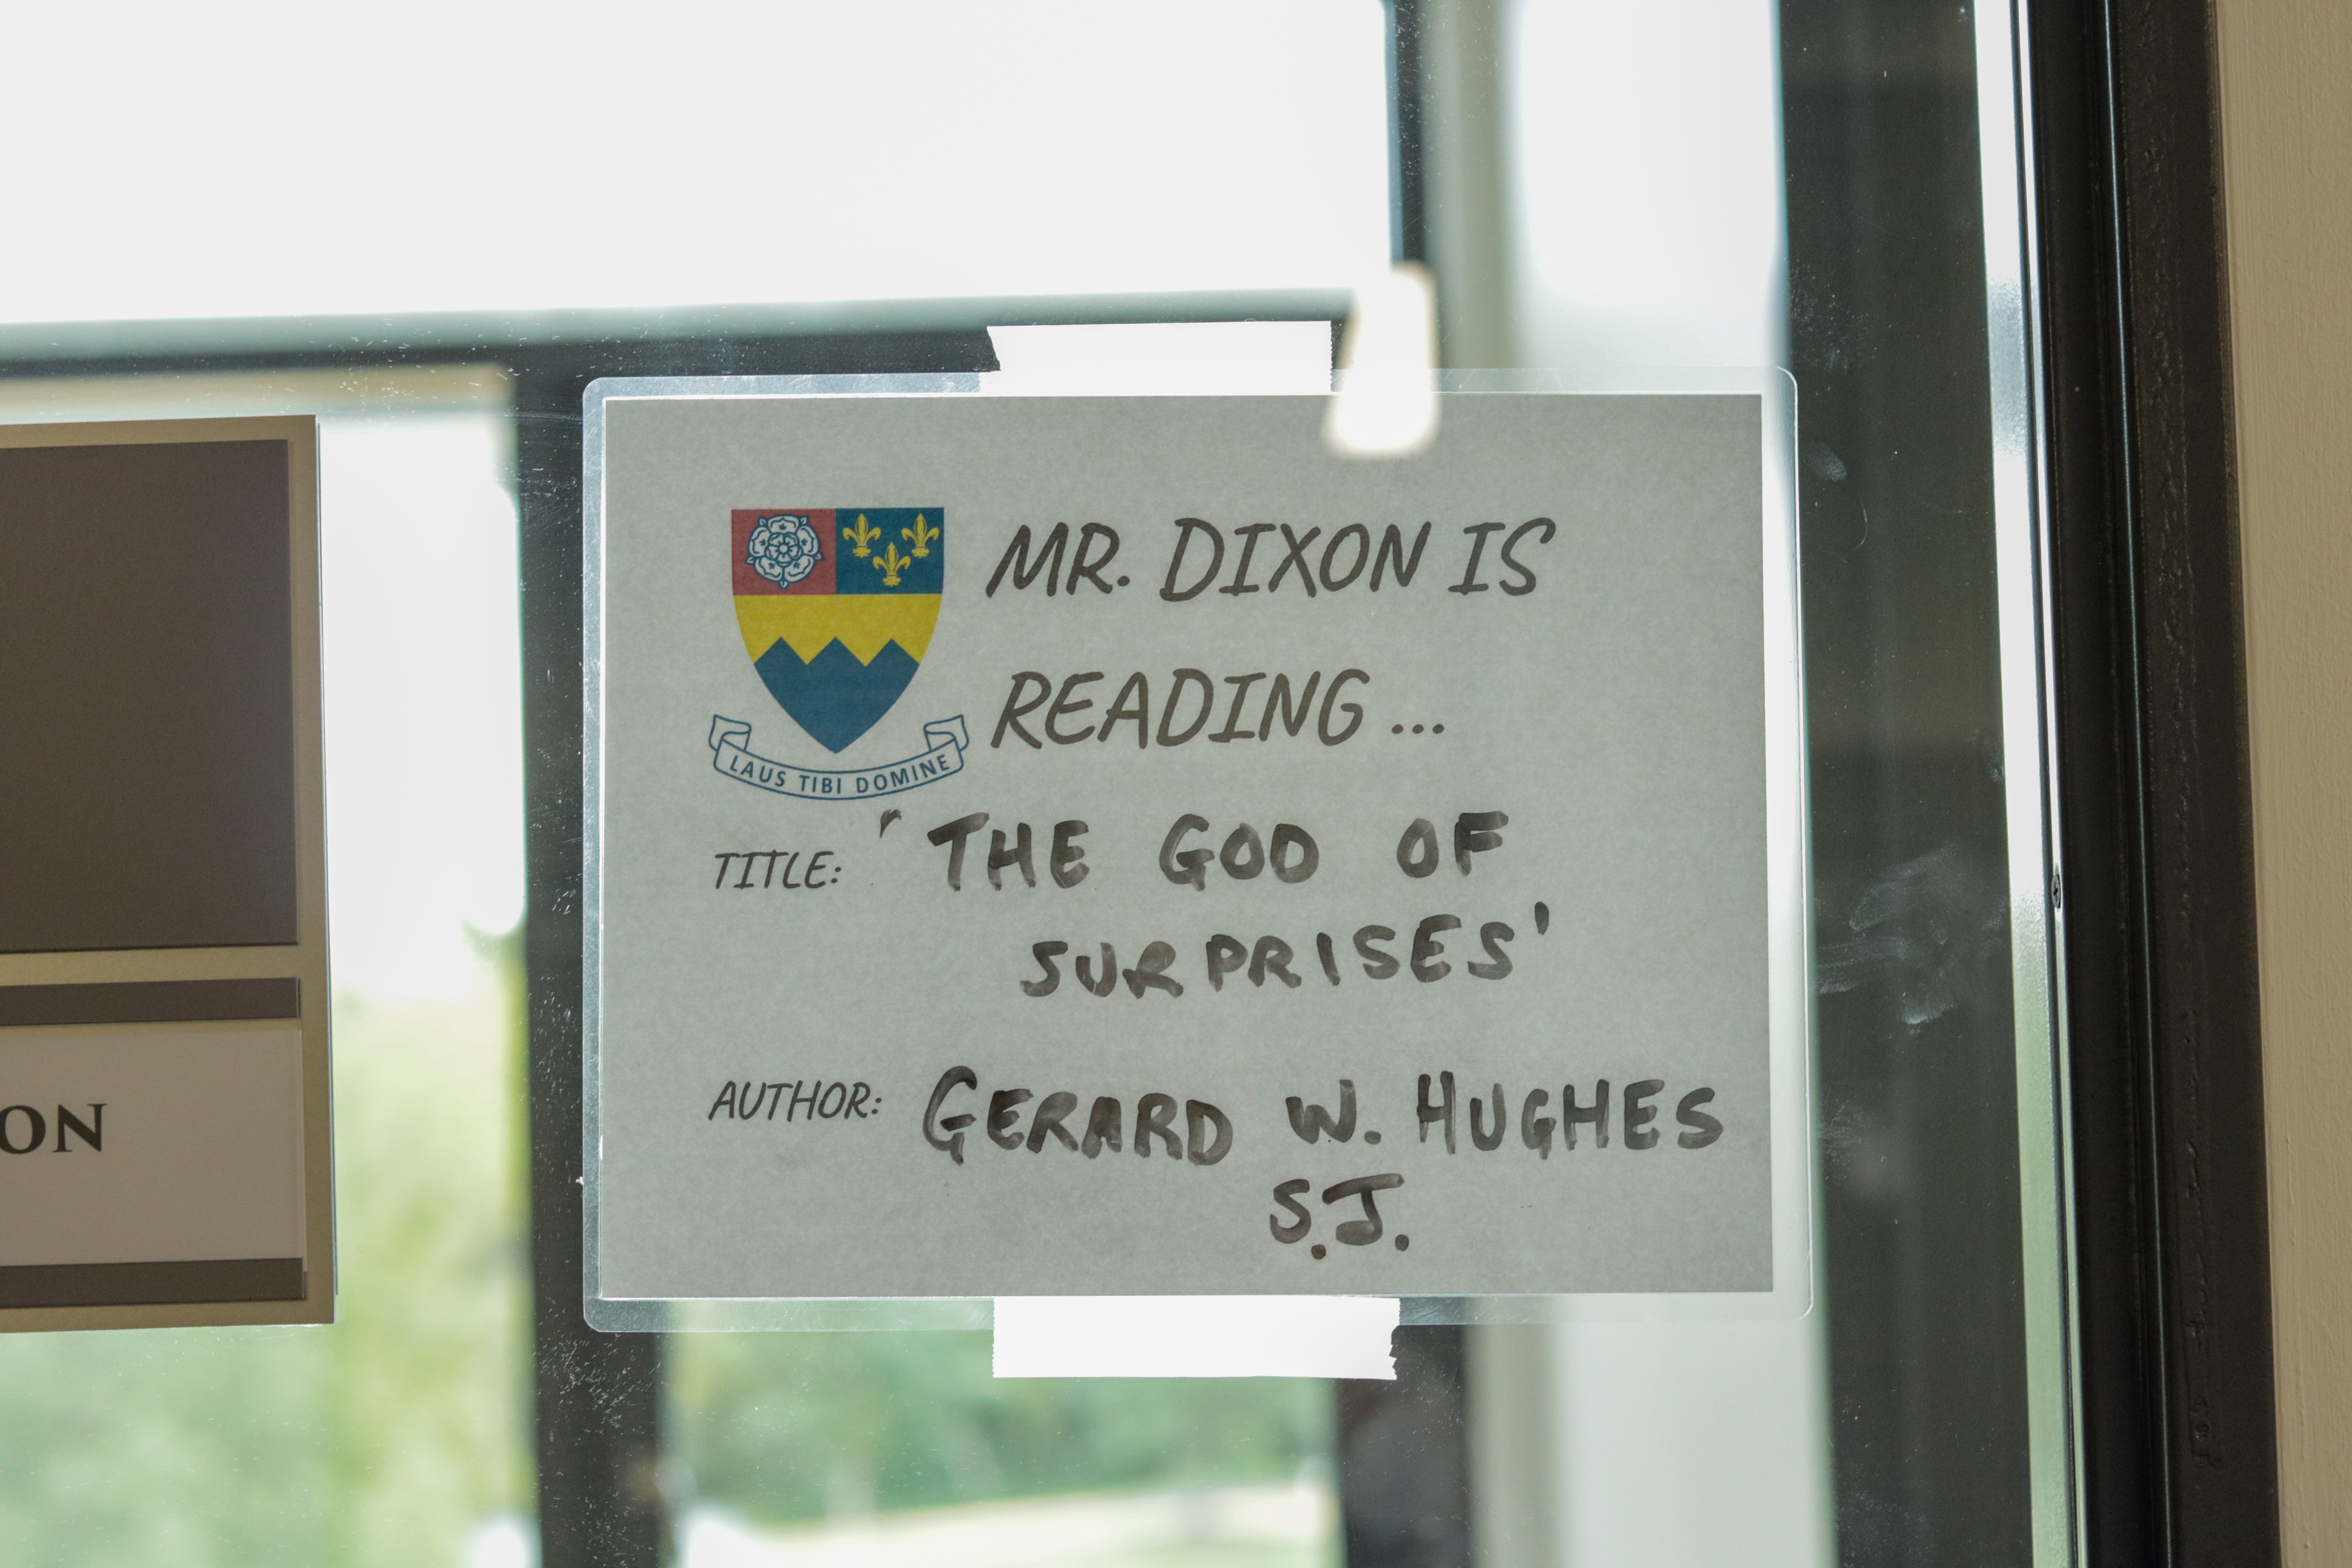 MR. DIXON IS
READING...
LAUS TIBI DOMINE
TITLE: 'THE GOD OF
SURPRISES'
AUTHOR: GERARD W. HUGHES
S.J.
ON